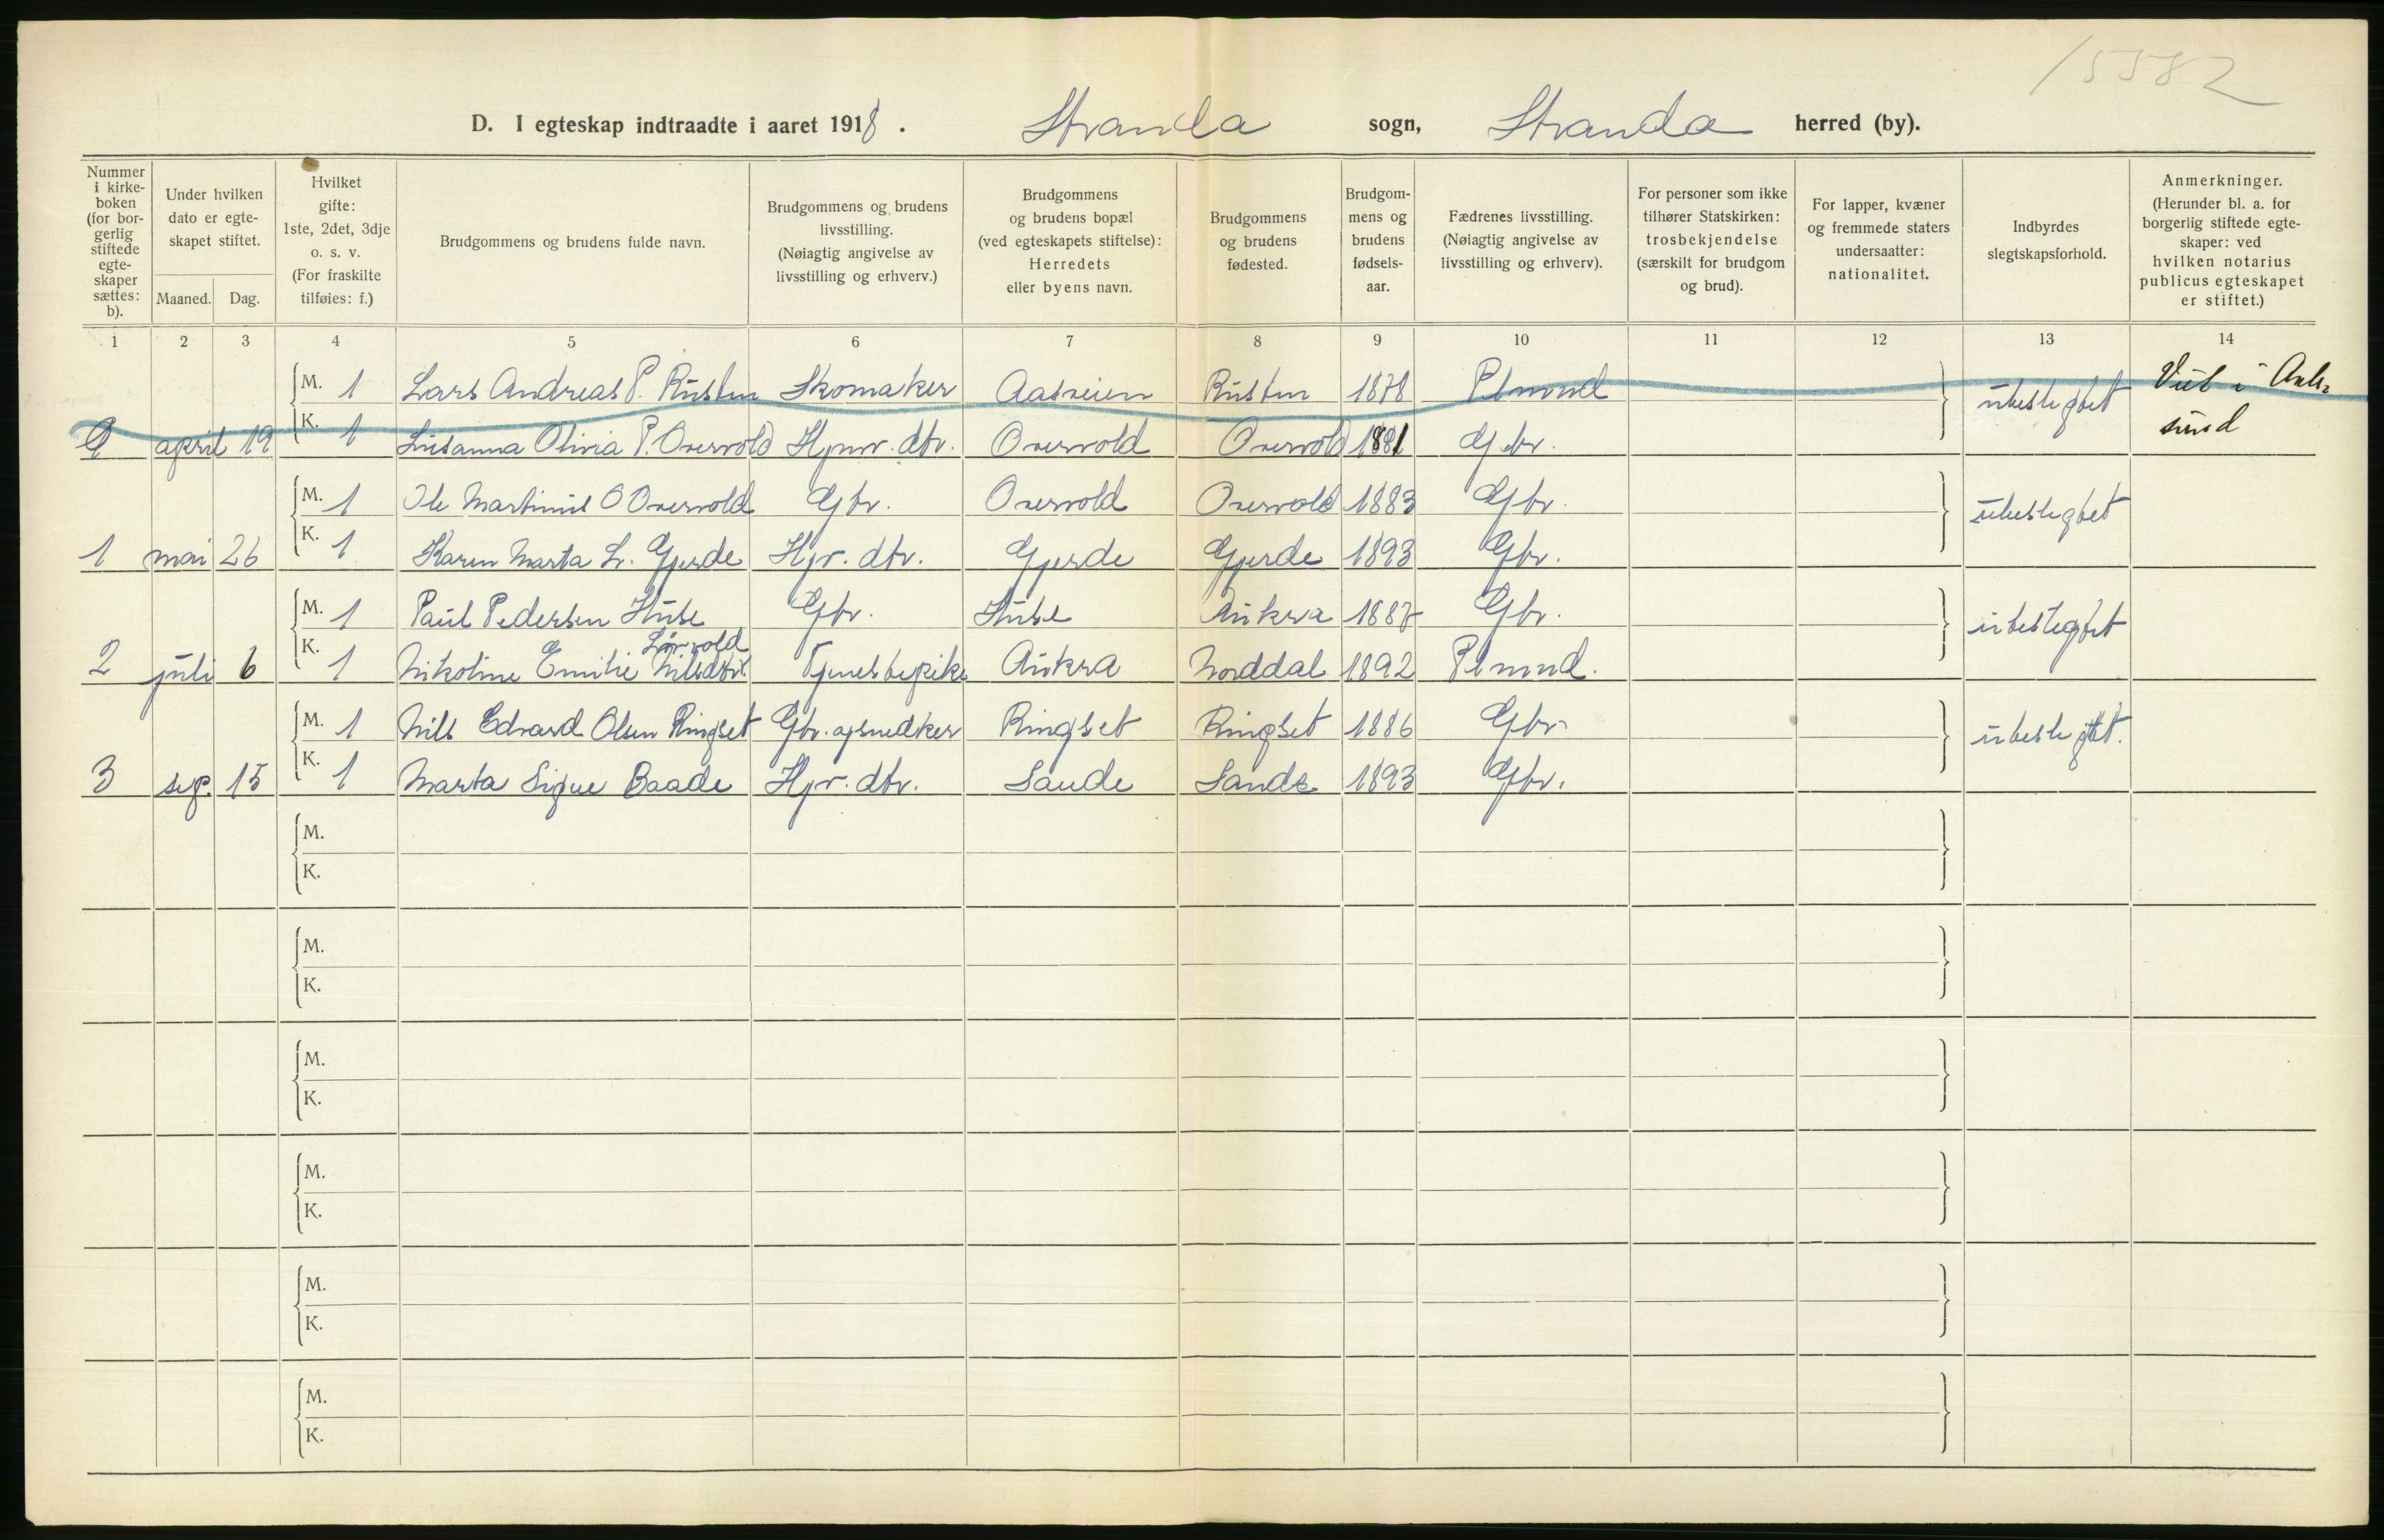 15582
D. I egteskap indtraadte i aaret 1918. Stranda sogn, Stranda herred (by).
Nummer i kirke- boken (for bor- gerlig stiftede egte- skaper sættes: b).
Under hvilken dato er egte- skapet stiftet.
Maaned. Dag.
Hvilket gifte: 1ste, 2det, 3dje o. s. v. (For fraskilte tilføies: f.)
Brudgommens og brudens fulde navn.
Brudgommens og brudens livsstilling. (Nøiagtig angivelse av livsstilling og erhverv.)
Brudgommens og brudens bopæl (ved egteskapets stiftelse): Herredets eller byens navn.
Brudgommens og brudens fødested.
Brudgom- mens og brudens fødsels- aar.
Fædrenes livsstilling. (Nøiagtig angivelse av livsstilling og erhverv).
For personer som ikke tilhører Statskirken: trosbekjendelse (særskilt for brudgom og brud).
For lapper, kvæner og fremmede staters undersaatter: nationalitet.
Indbyrdes slegtskapsforhold.
Anmerkninger. (Herunder bl. a. for borgerlig stiftede egte- skaper: ved hvilken notarius publicus egteskapet er stiftet.)
1 2 3 4 5 6 7 8 9 10 11 12 13 14
M. 1 Lars Andreas P. Rusten Skomaker Aasveien Rusten 1878 Plmnd ubeslegtet Viet i Aale-
april 19 K. 1 Susanna Olivia P. Overvold Hjmv. dtr. Overvold Overvold 1881 Gbr. sund
M. 1 Ole Martinus O Overvold Gbr. Overvold Overvold 1883 Gbr. ubeslegtet
1 mai 26 K. 1 Karen Marta L. Gjerde Hjv. dtr. Gjerde Gjerde 1893 Gbr.
M. 1 Paul Pedersen Huse Gbr. Huse Aukra 1887 Gbr. ubeslegtet
Lørvold
2 juli 6 K. 1 Nikoline Emilie Nilsdtr. Tjenestepike Aukra Norddal 1892 Plmnd.
M. 1 Nils Edvard Olsen Ringset Gbr. og snedker Ringset Ringset 1886 Gbr. ubeslegtet.
3 sep. 15 K. 1 Marta Signe Baade Hjv. dtr. Sande Sande 1893 Gbr.
M.
K.
M.
K.
M.
K.
M.
K.
M.
K.
M.
K.